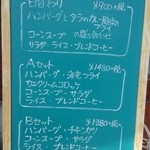 日替わり ¥900(税込)
ハンバーグとタラの
フライ
の盛り合わせ
コーンスープ
サラダ・ライス・ブレンドコーヒー
Aセット ¥1480(税込)
ハンバーグ・海老フライ
カニクリームコロッケ
コーンスープ・サラダ
ライス・ブレンドコーヒー
Bセット ¥1380(税込)
ハンバーグ・チキンカツ
コーンスープ・サラダ
ライス・ブレンドコーヒー